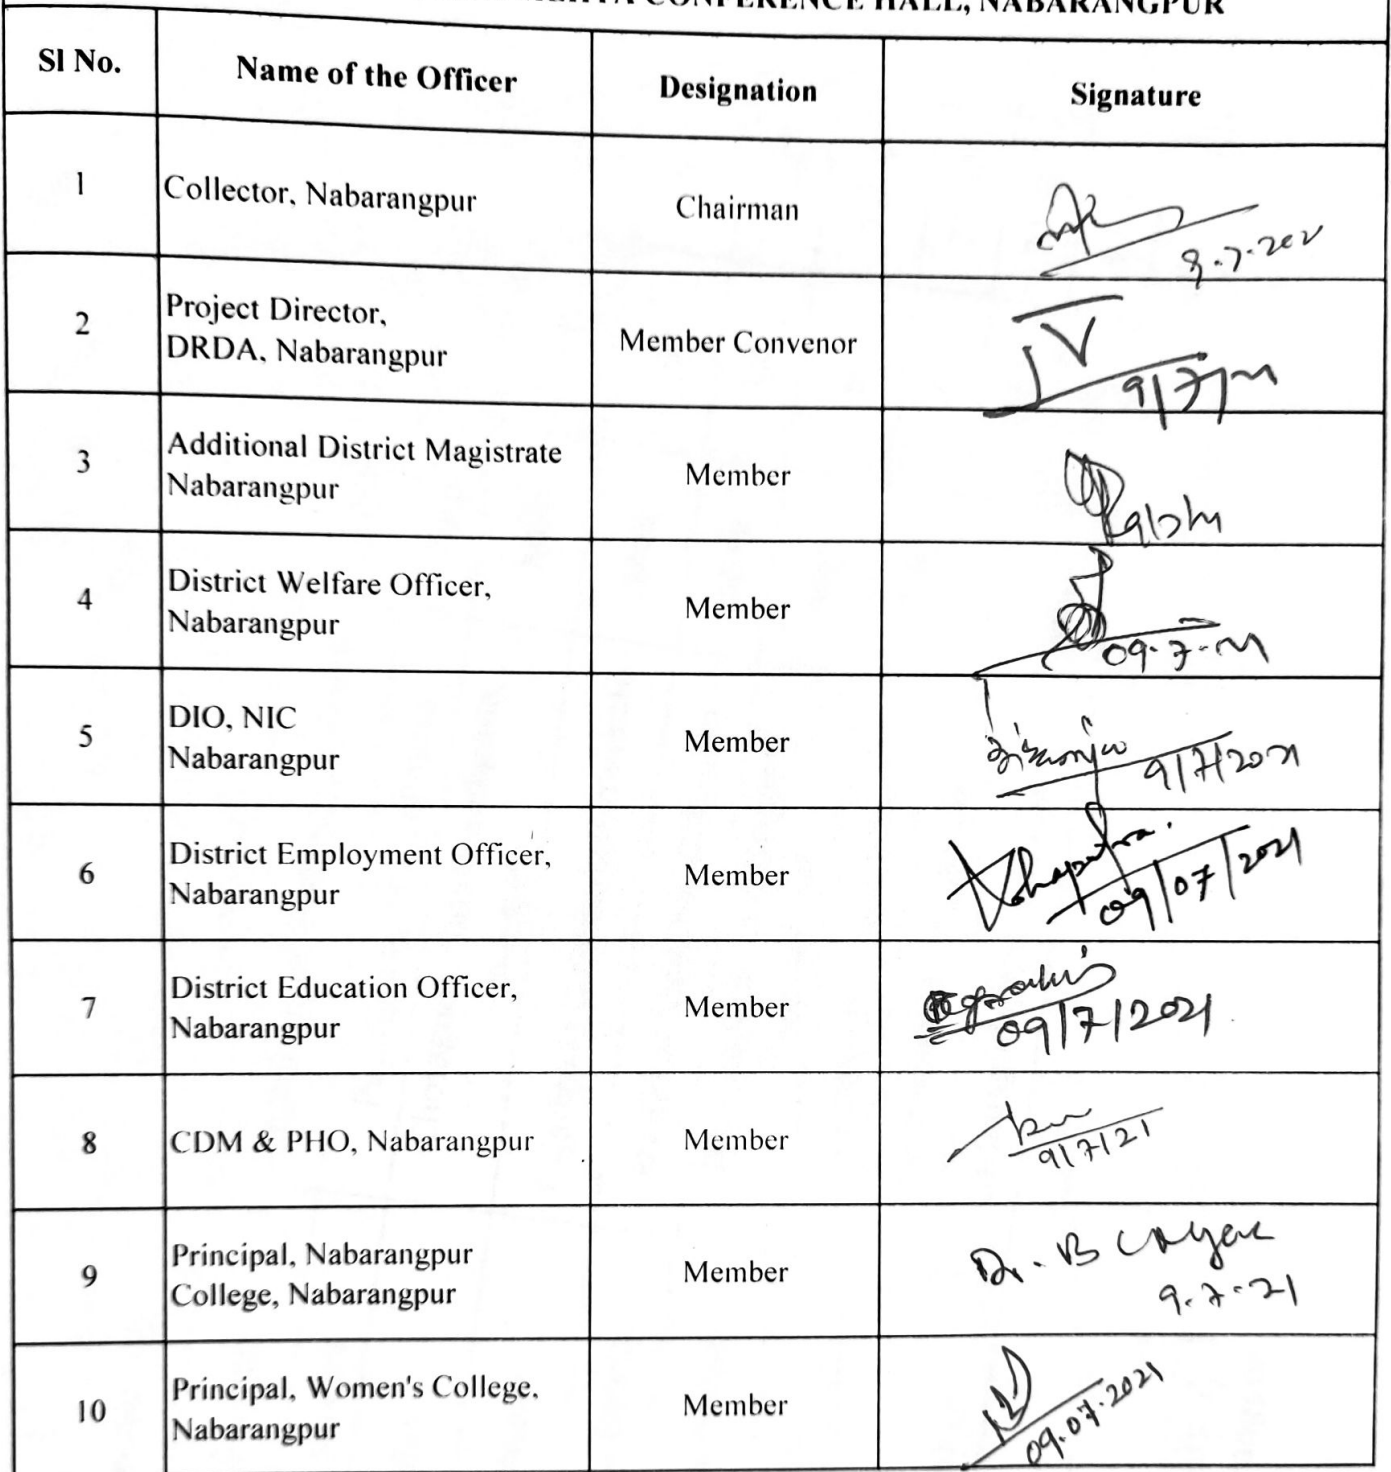 CONFERENCE HALL, NABARANGPUR
Sl No.
Name of the Officer
Designation
Signature
1
Collector, Nabarangpur
Chairman
2
Project Director,
DRDA, Nabarangpur
Member Convenor
9/7/21
3
Additional District Magistrate
Nabarangpur
Member
4
District Welfare Officer,
Nabarangpur
Member
09.7.21
5
DIO, NIC
Nabarangpur
Member
9/7/2021
6
District Employment Officer,
Nabarangpur
Member
09/07/2021
7
District Education Officer,
Nabarangpur
Member
09/7/2021
8
CDM & PHO, Nabarangpur
Member
9/7/21
9
Principal, Nabarangpur
College, Nabarangpur
Member
Dr. B
9.7.21
10
Principal, Women's College,
Nabarangpur
Member
09.07.2021